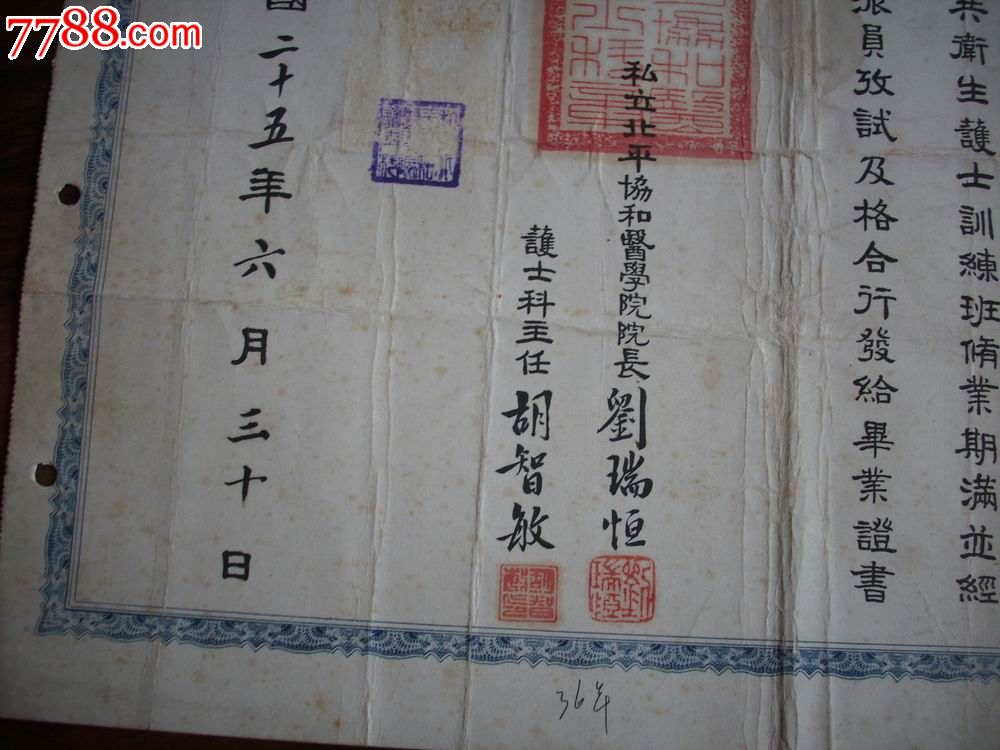 共衛生護士訓練班脩業期滿並經
派員攷試及格合行發給畢業證書
私立北平協和醫學院院長劉瑞恒
護士科主任胡智敏
國二十五年六月三十日
劉瑞恒
36年
7788.com